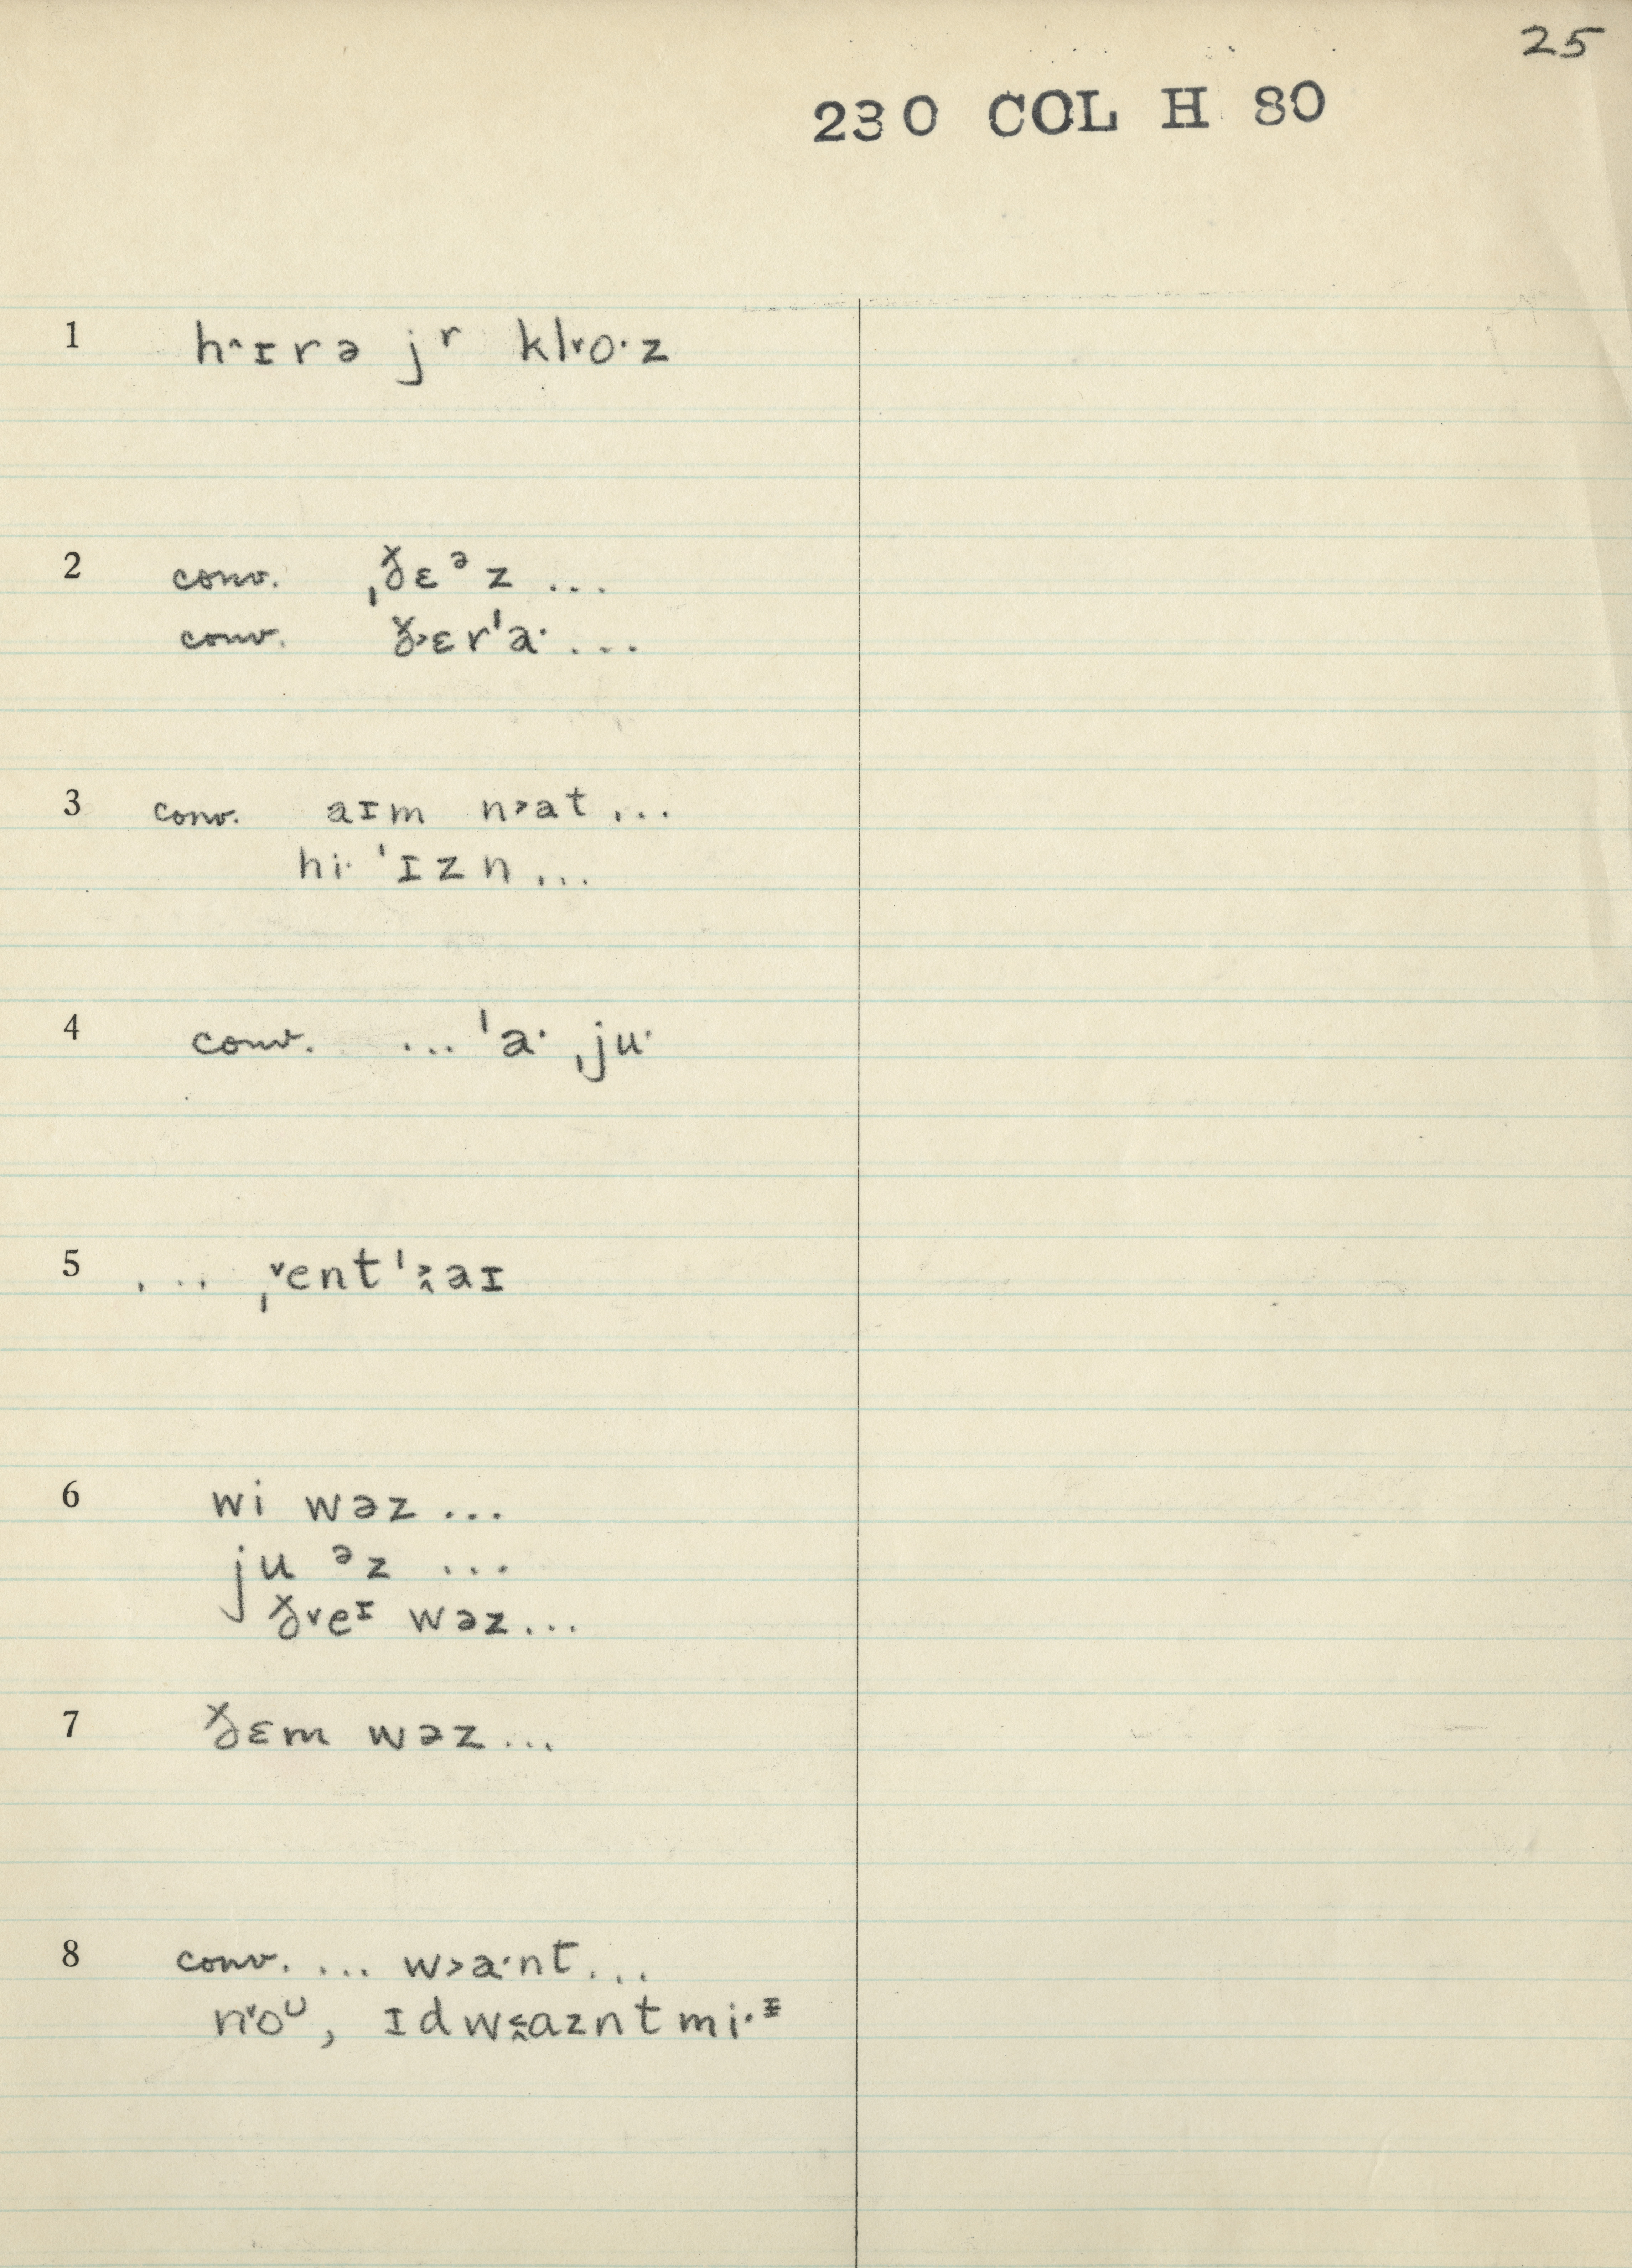 25
230 COL H 80
1 h˄ɪrə jʳ kl˅o·z
2 conv. ˌðɛᵊz ...
conv. ð˃ɛrˈa· ...
3 conv. aɪm n˃at ...
hi· ˈɪzn ...
4 conv. ... ˈa· ˌju·
5 ... ˌ˅entˈ˃˄aɪ
6 wi wəz ...
ju ᵊz ...
ð˅eᶦ wəz ...
7 ðɛm wəz ...
8 conv. ... w˃a·nt ...
n˅oᶸ, ɪdw˂˄azntmi·ᵻ